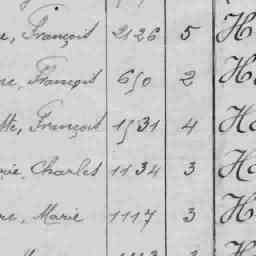 e, François 2126 5 H
re, François 650 2 H
tte, François 1531 4 Ha
rie, Charles 1134 3 Ha
re, Marie 1117 3 H